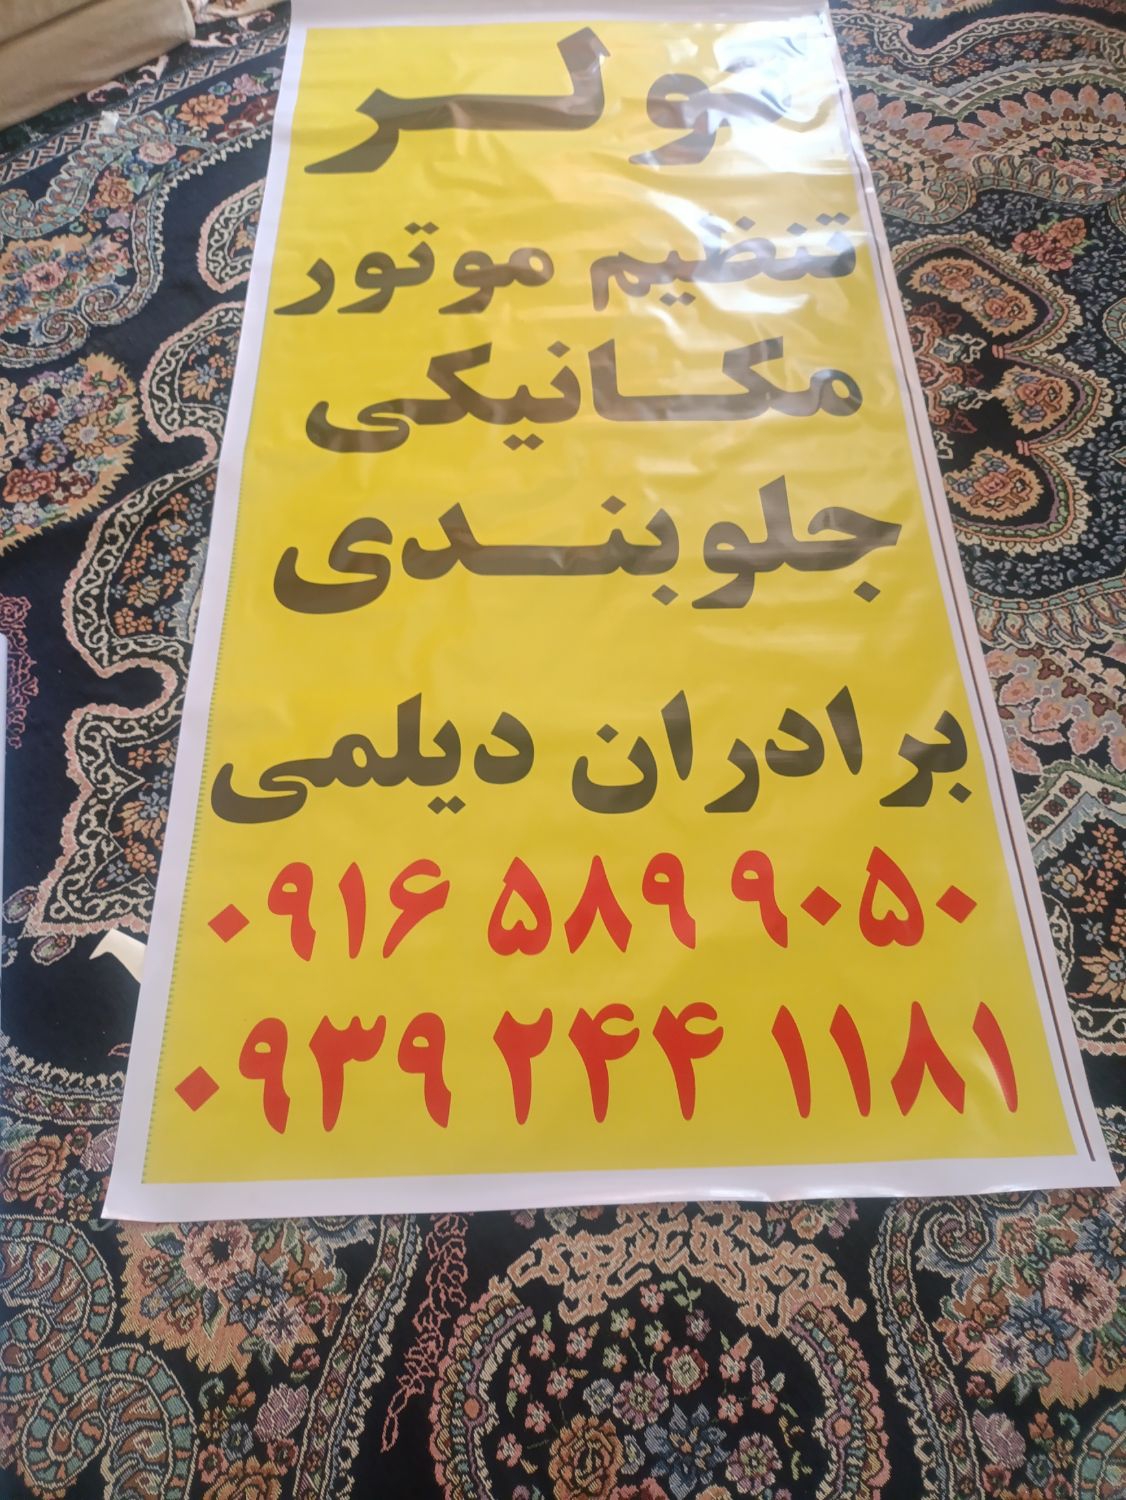 تنظیم موتور
مکانیکی
جلوبندی
برادران دیلمی
۰۹۱۶ ۵۸۹ ۹۰۵۰
۰۹۳۹ ۲۴۴ ۱۱۸۱